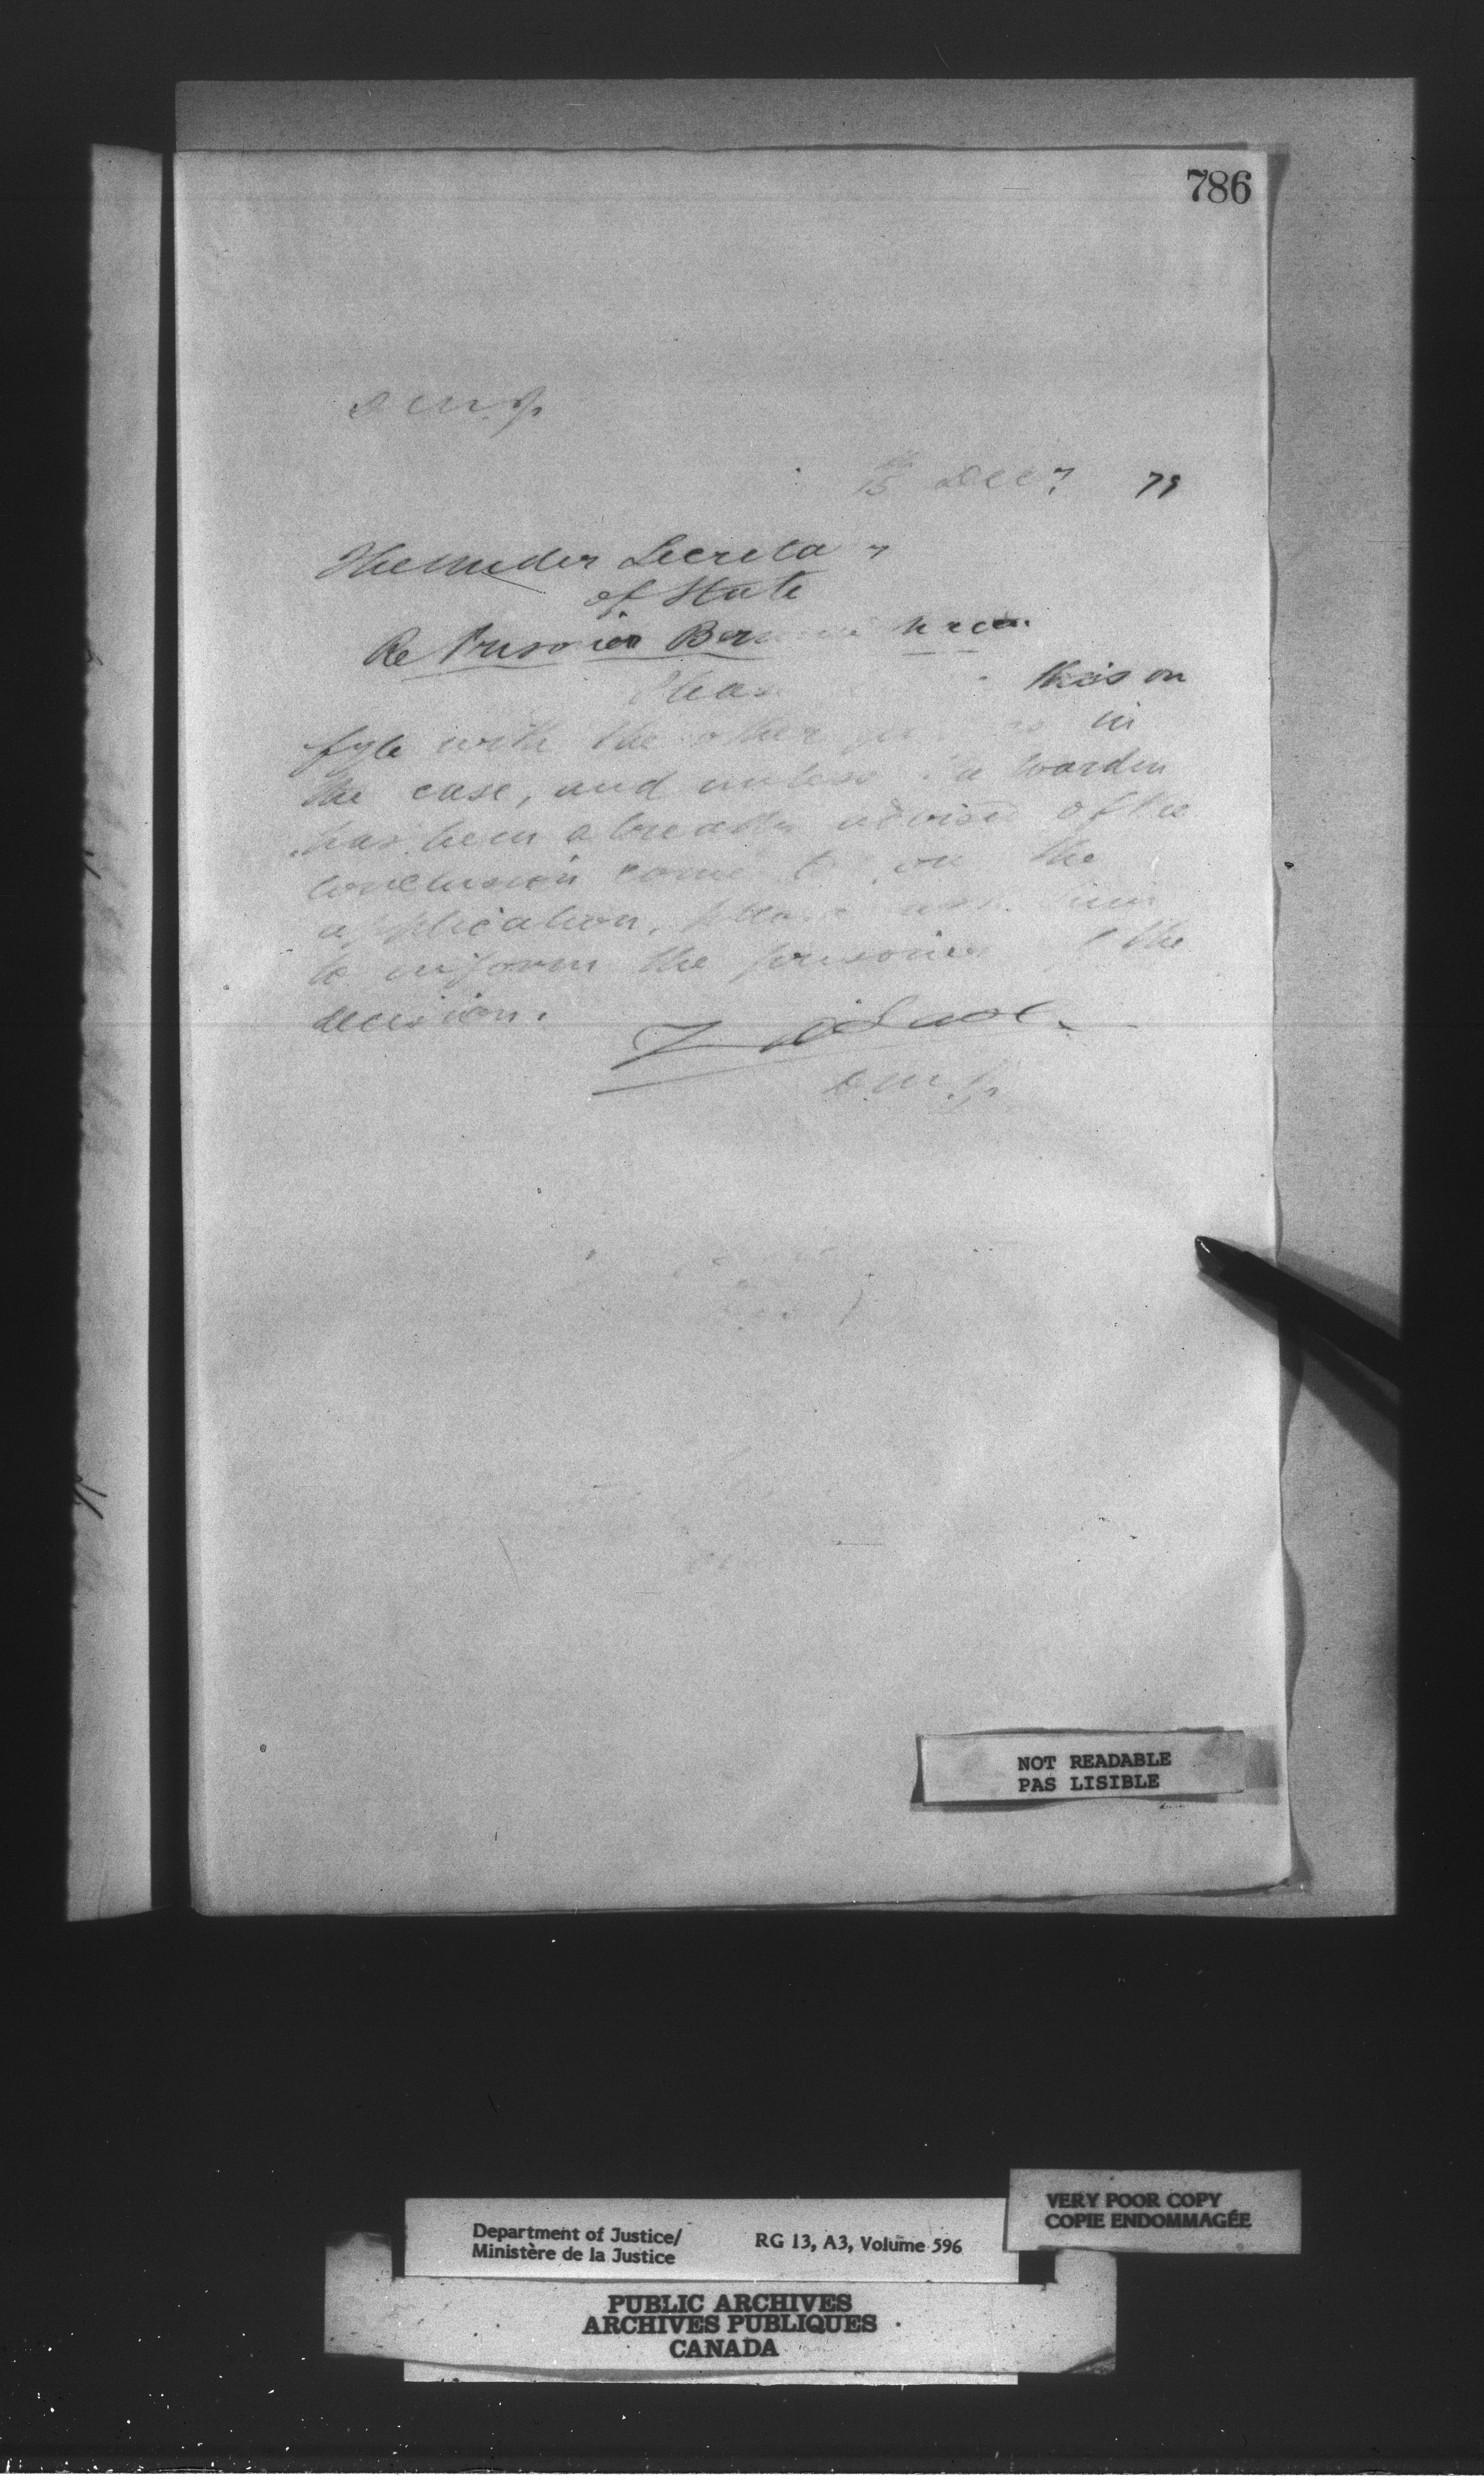 786
D.M.J.
15 Decr 79
The Under Secreta y
of State
Re Prisoner
Please this on
fyle with the other in
the case, and unless the Warden
has been already advised of the
conclusion come to on the
application, please ask him
to inform the prisoner of the
decision.
D.M.J.
NOT READABLE
PAS LISIBLE
VERY POOR COPY
COPIE ENDOMMAGÉE
Department of Justice/
Ministère de la Justice
RG 13, A3, Volume 596
PUBLIC ARCHIVES
ARCHIVES PUBLIQUES
CANADA